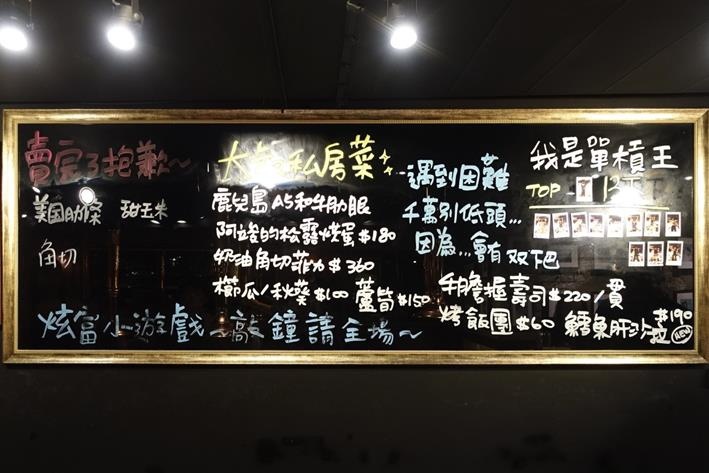 賣完了抱歉~
美國肋條 甜玉米
角切
私房菜
鹿兒島A5和牛肋眼
松露烘蛋$180
奶油角切菲力$360
櫛瓜/秋葵$100 蘆筍$150
遇到困難
千萬別低頭...
因為...會有双下巴
我是單槓王
TOP
握壽司$220/貫
烤飯團$60 鱈魚肝沙拉$190
NEW
炫富小遊戲 敲鐘請全場~